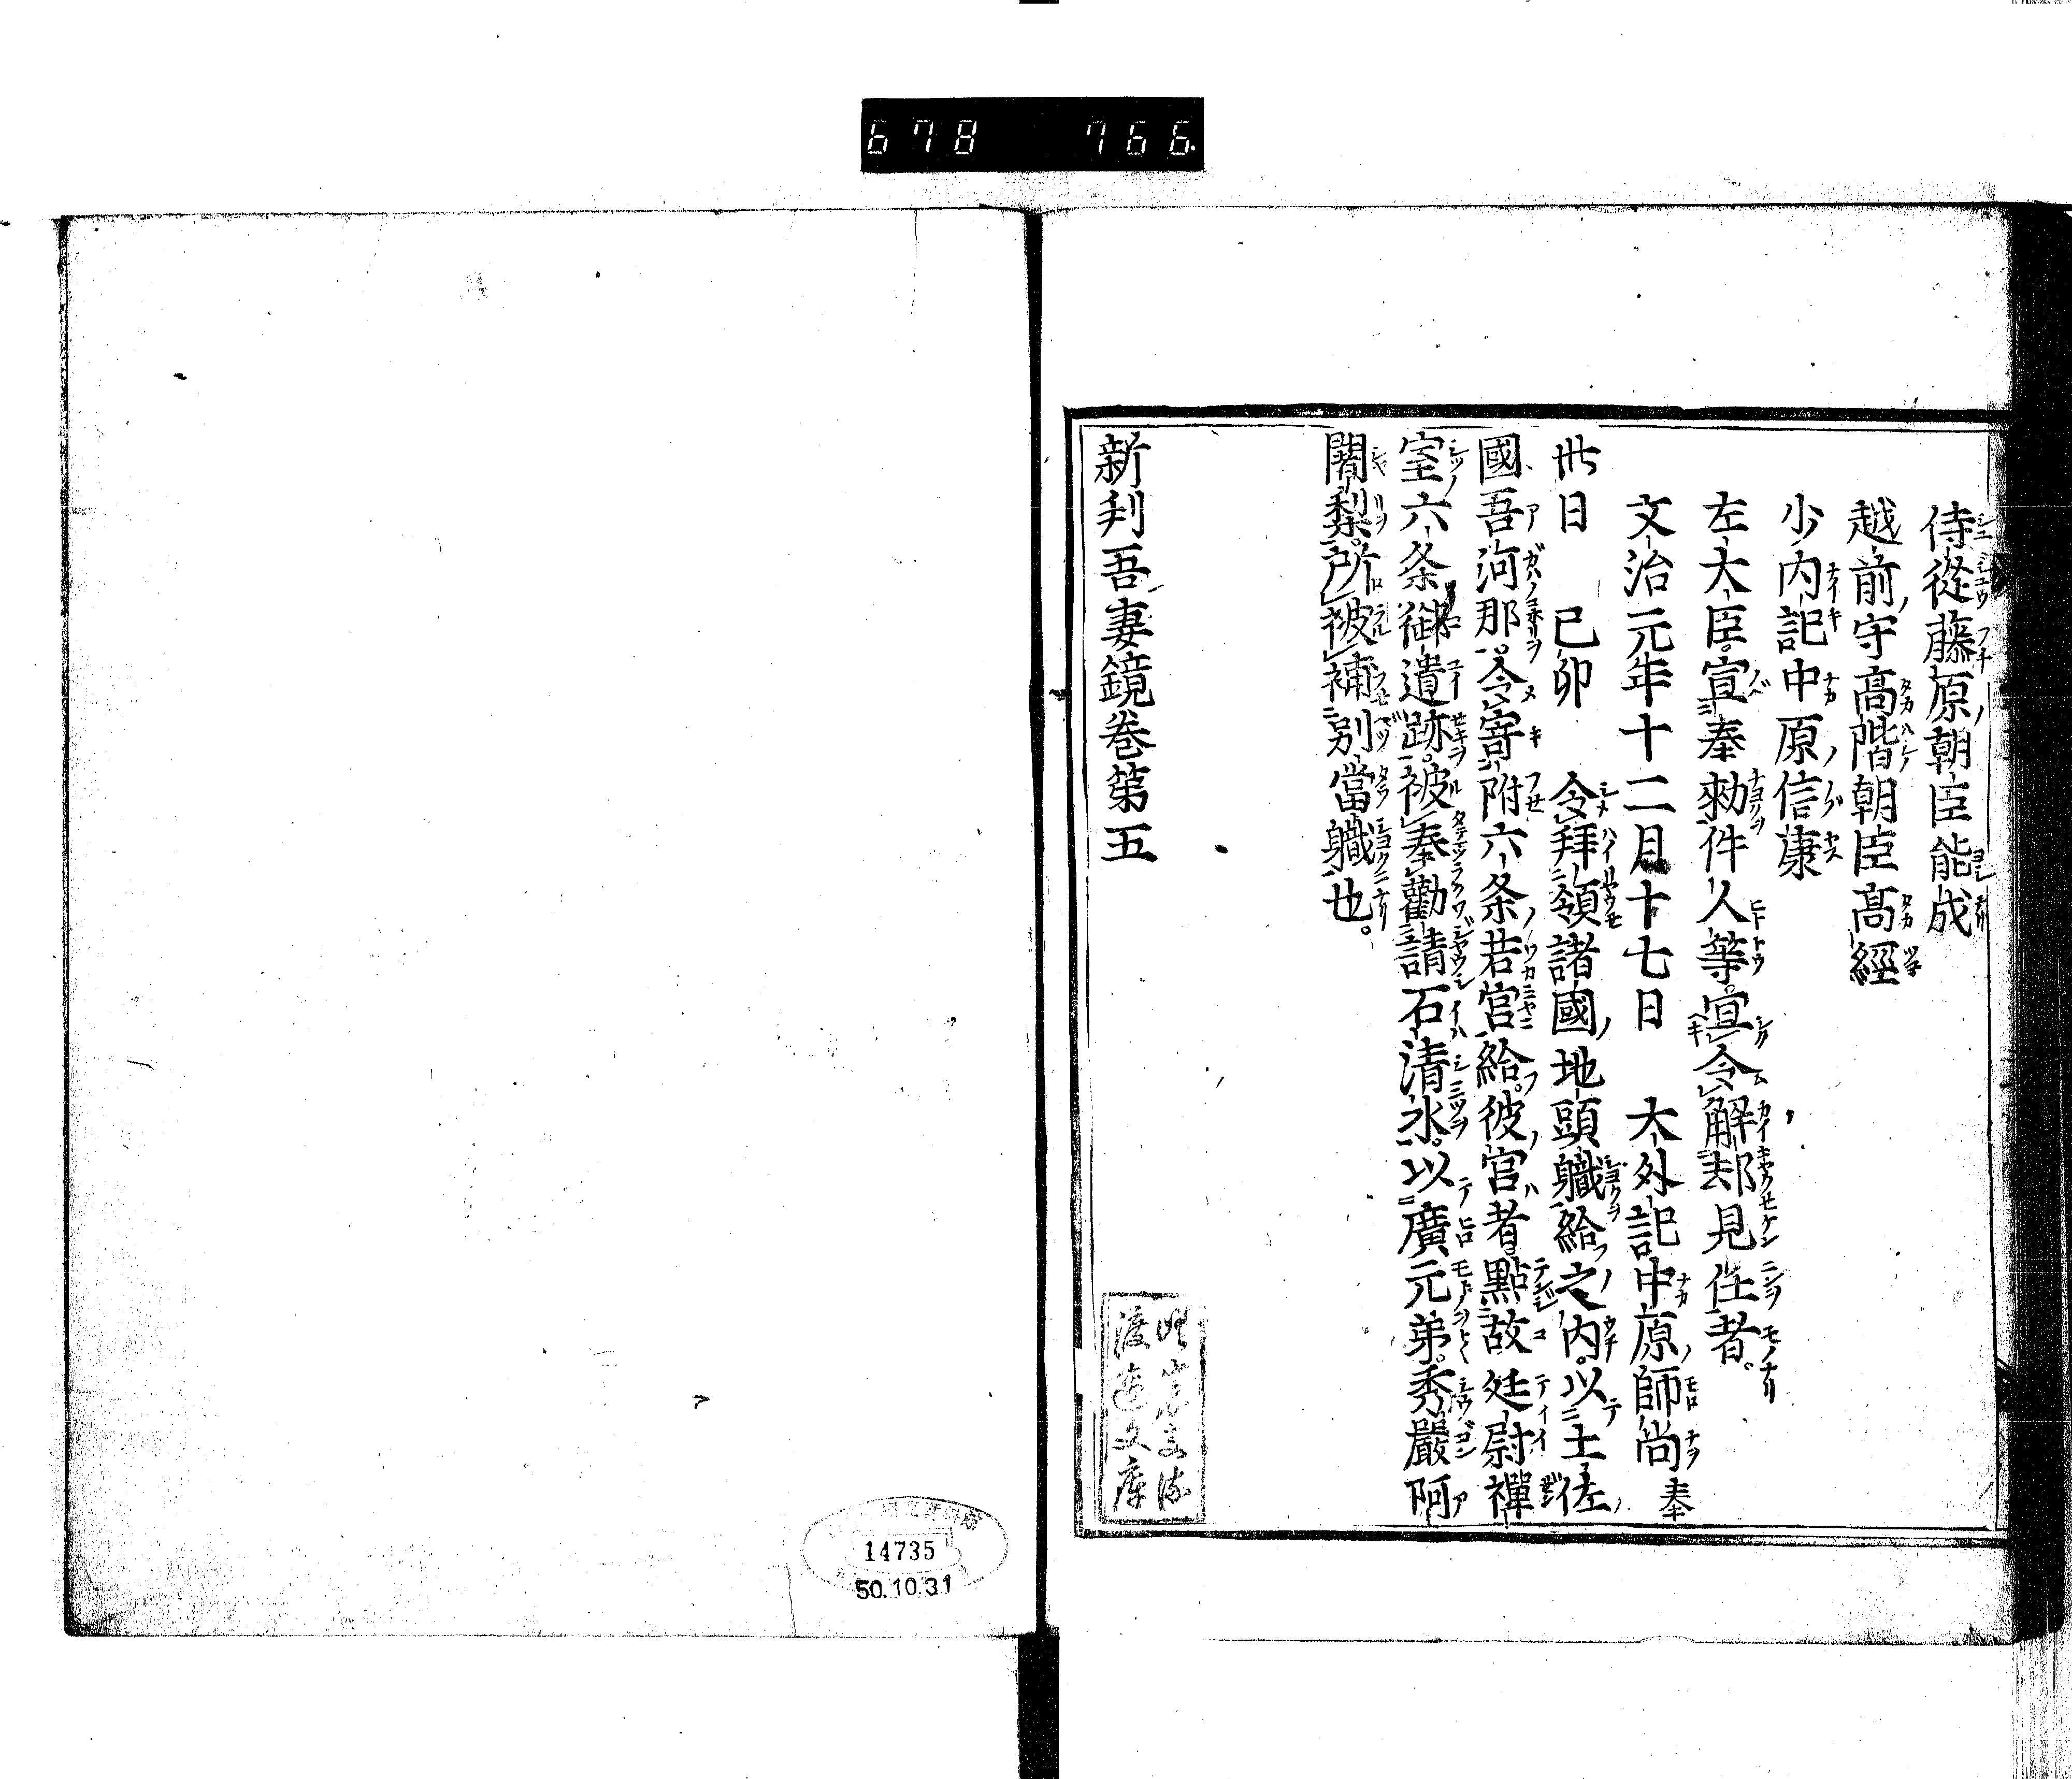 678 766
侍從藤原朝臣能成
越前守高階朝臣高經
少內記中原信康
左大臣宣奉勑件人等宜令解却見任者
文治元年十二月十七日 大外記中原師尚奉
卅日 己卯 令拜領諸國地頭職給之內以土佐
國吾河那令寄附六条若宮給彼宮者點故廷尉禪
室六条御遺跡被奉勸請石清水以廣元弟秀嚴阿
闍梨所被補別當職也
新刋吾妻鏡卷第五
渡邉文庫
14735
50.10.31